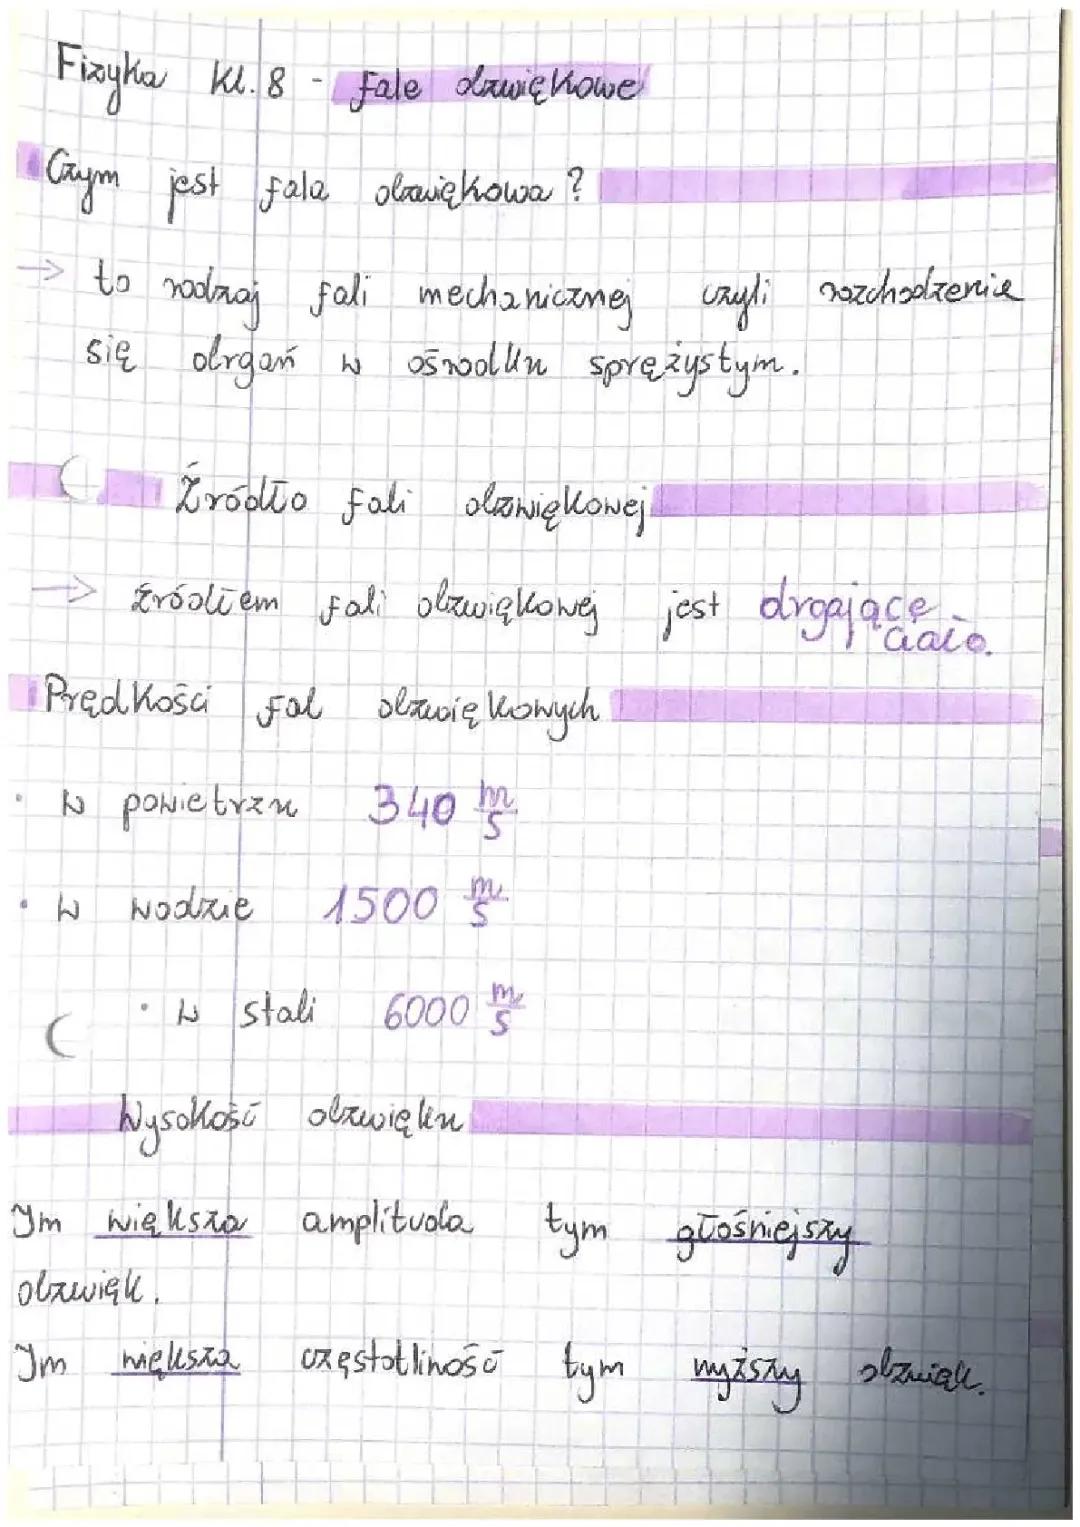 Fizyka kl. 8 - fale dzwiękowe
Czym jest fala dzwiękowa?
→ to rodzaj fali mechanicznej czyli rozchodzenie
się drgań w ośrodku sprężystym.
Źródło fali dzwiękowej
→ źródłem fali dzwiękowej jest drgające
ciało.
Prędkości fal dzwiękowych
• w powietrzu 340 m/s
• w wodzie 1500 m/s
• w stali 6000 m/s
Wysokość dzwięku
Im większa amplituda tym głośniejszy
dzwięk.
Im większa częstotliność tym wyższy dzwięk.